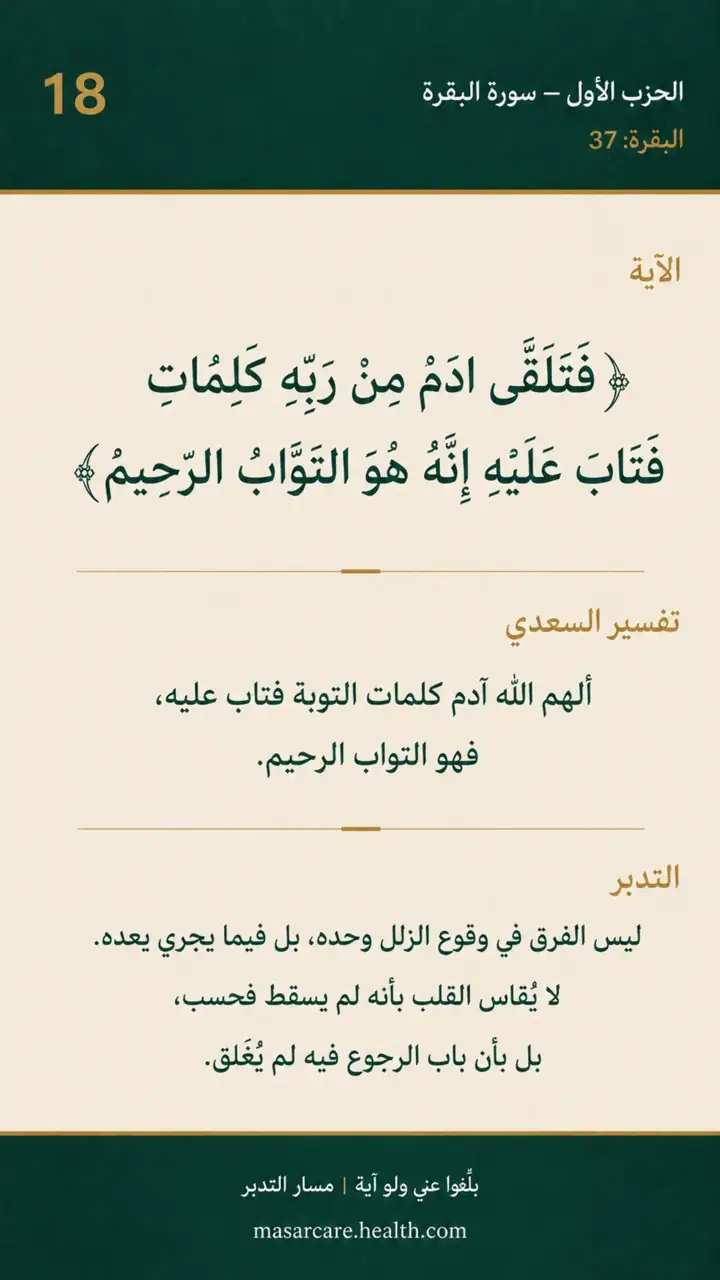 18
الحزب الأول – سورة البقرة
البقرة: 37
الآية
﴿فَتَلَقَّى ادَمُ مِنْ رَبِّهِ كَلِمُاتِ
فَتَابَ عَلَيْهِ إِنَّهُ هُوَ التَوَّابُ الرّحِيمُ﴾
تفسير السعدي
ألهم الله آدم كلمات التوبة فتاب عليه،
فهو التواب الرحيم.
التدبر
ليس الفرق في وقوع الزلل وحده، بل فيما يجري يعده.
لا يُقاس القلب بأنه لم يسقط فحسب،
بل بأن باب الرجوع فيه لم يُغَلق.
بلِّغوا عني ولو آية | مسار التدبر
masarcare.health.com